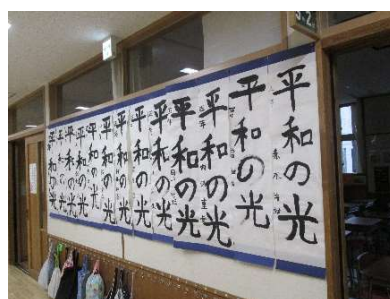 平和の光
平和の光
平和の光
平和の光
平和の光
平和の光
平和の光
平和の光
平和の光
平和の光
平和の光
平和の光
平和の光